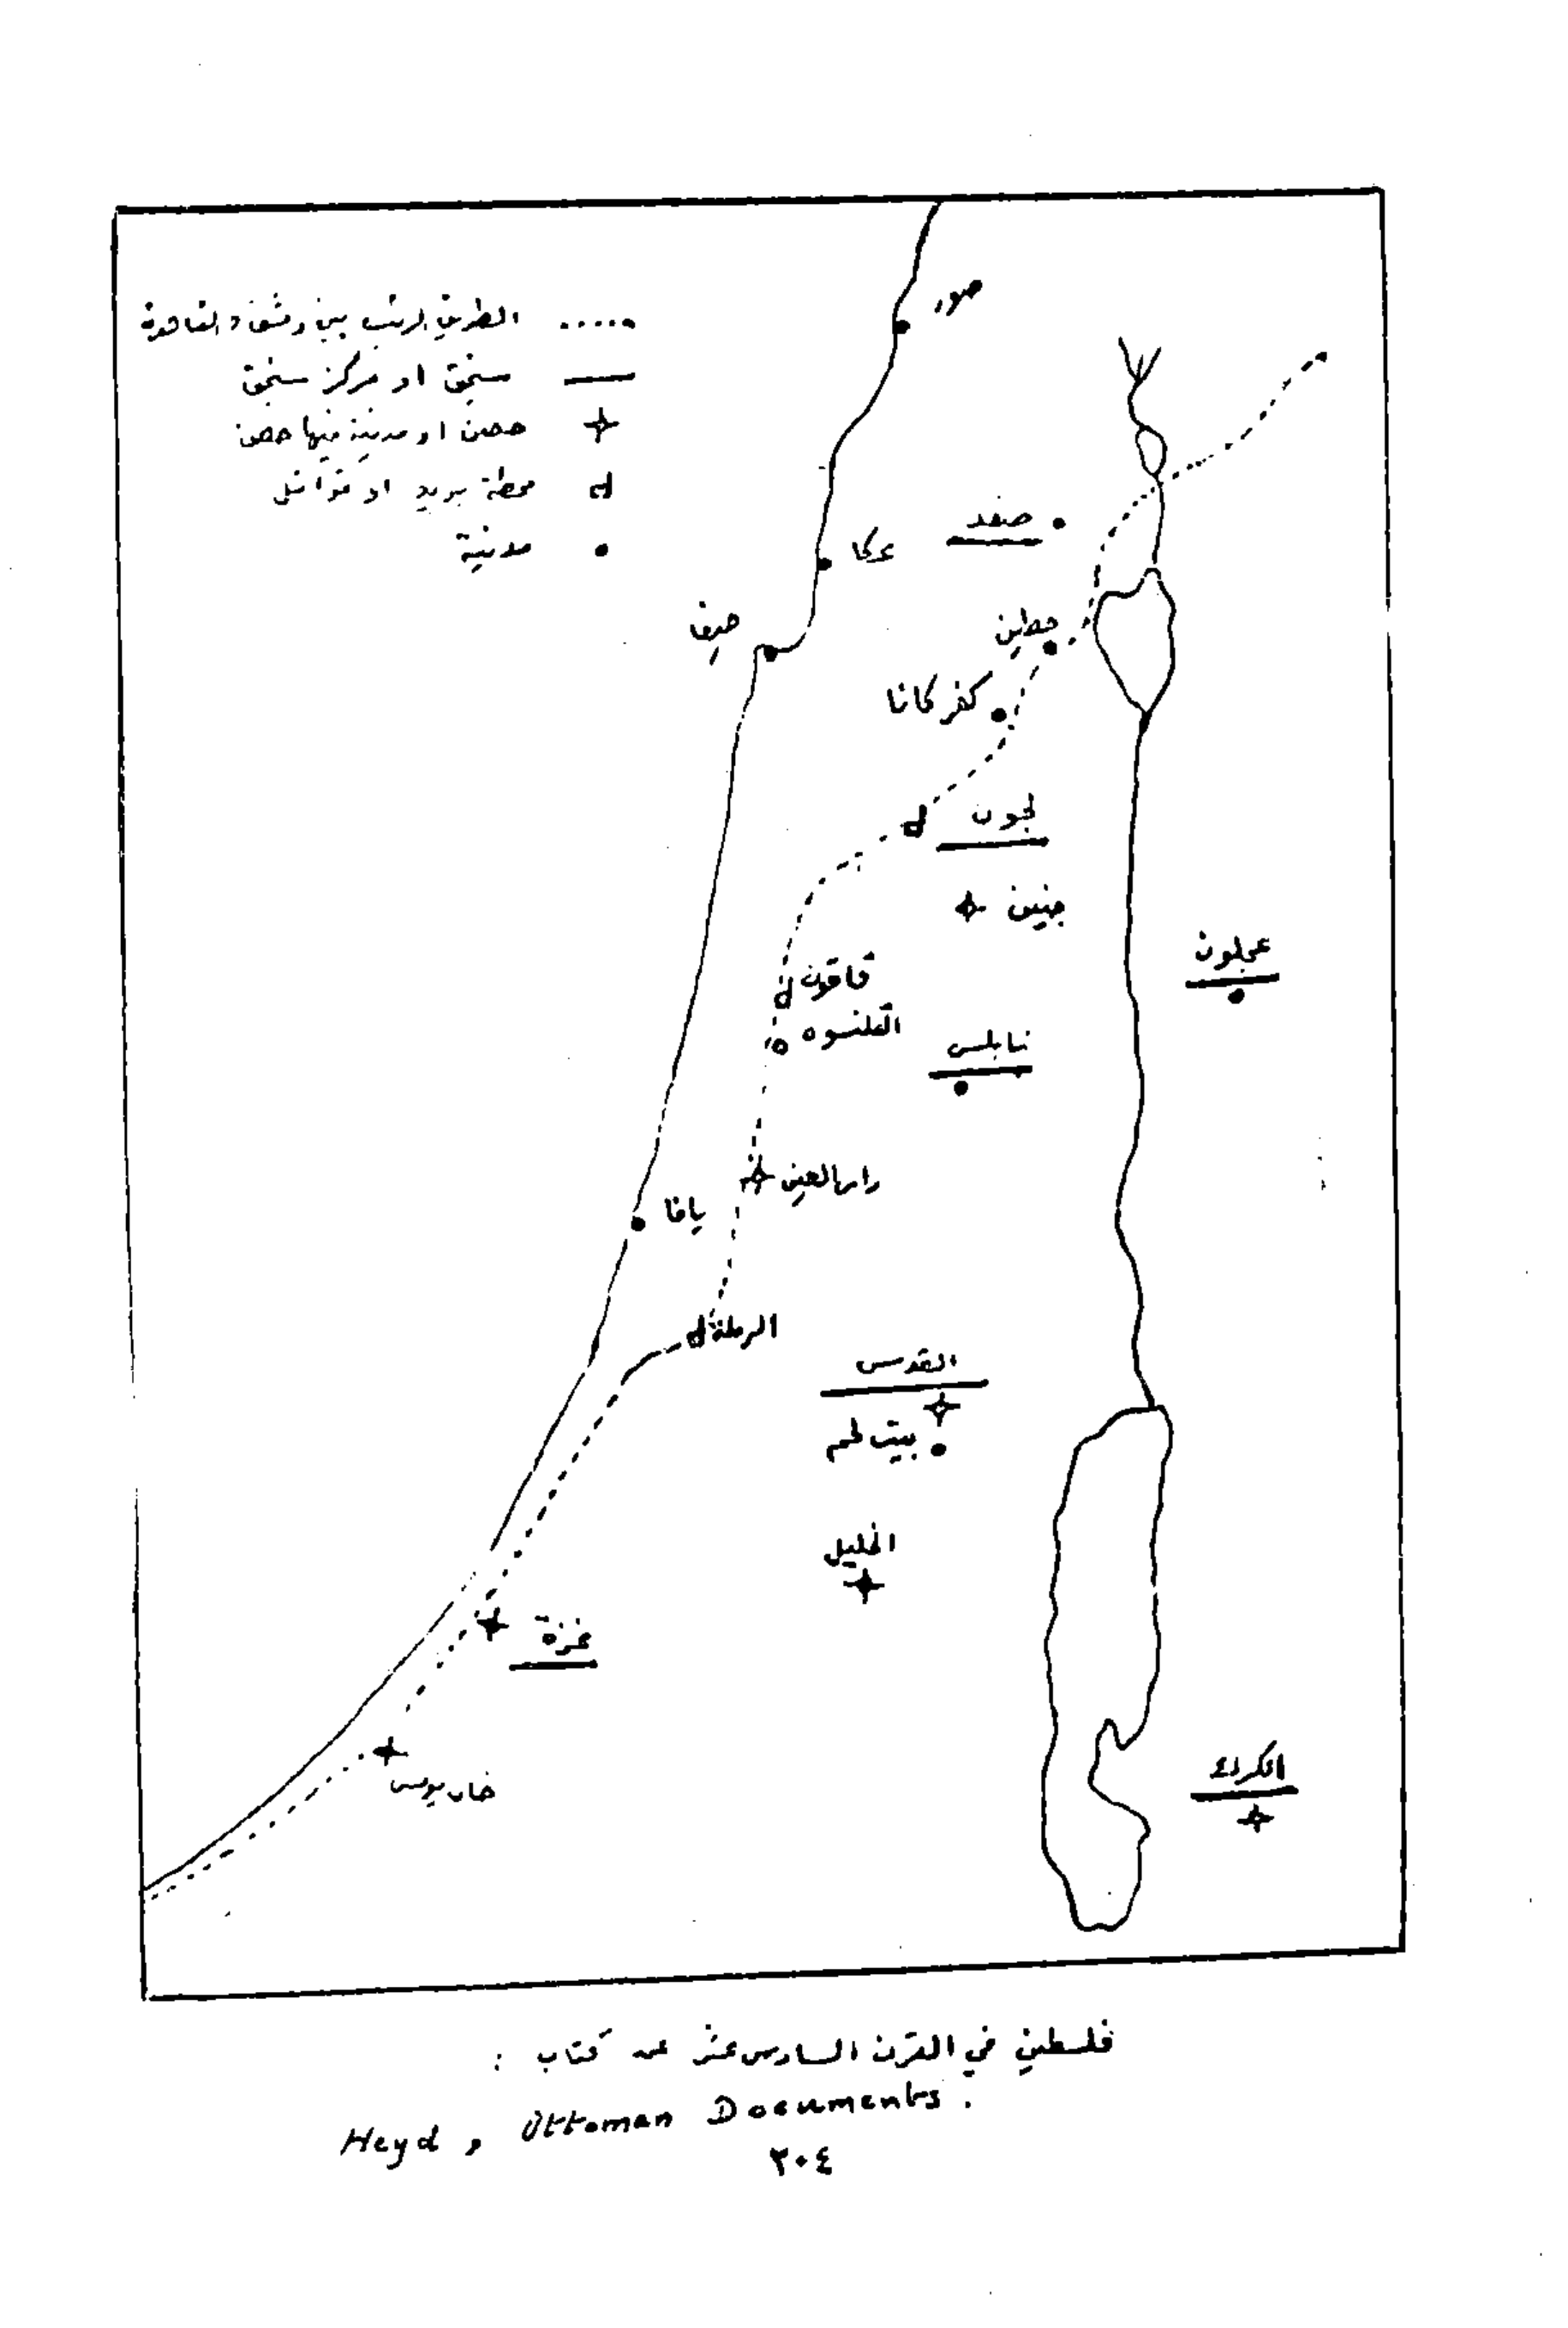 الطريق الرئيسي بين دمشق والقاهرة
سنجق او مركز سنجق
حصن او مدينة فيها حصن
محطة بريد او قوافل
مدينة
صور
صفد
عكا
حيفا
حطين
كفر كانا
لجون
جنين
عجلون
قاقون
القلنسوه
نابلس
راس العين
يافا
الرملة
القدس
بيت لحم
الخليل
غزة
خان يونس
الكرك
فلسطين في القرن السادس عشر عن كتاب :
Heyd, Ottoman Documents.
٢٠٤